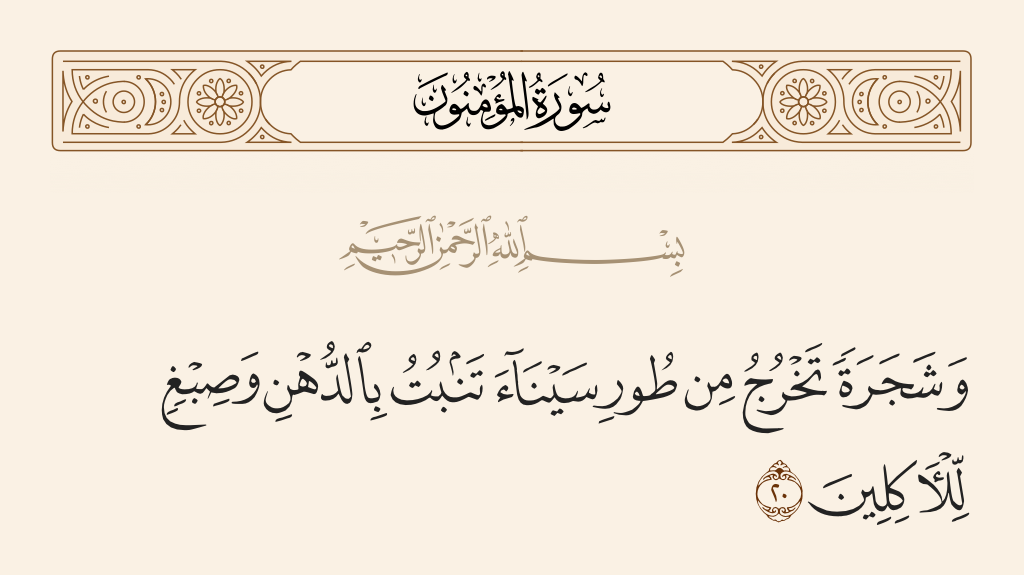 سُورَةُ المُؤْمِنُونَ
بِسْمِ ٱللَّهِ ٱلرَّحْمَٰنِ ٱلرَّحِيمِ
وَشَجَرَةً تَخْرُجُ مِن طُورِ سَيْنَآءَ تَنۢبُتُ بِٱلدُّهْنِ وَصِبْغٍ
لِّلْـَٔاكِلِينَ ٢٠